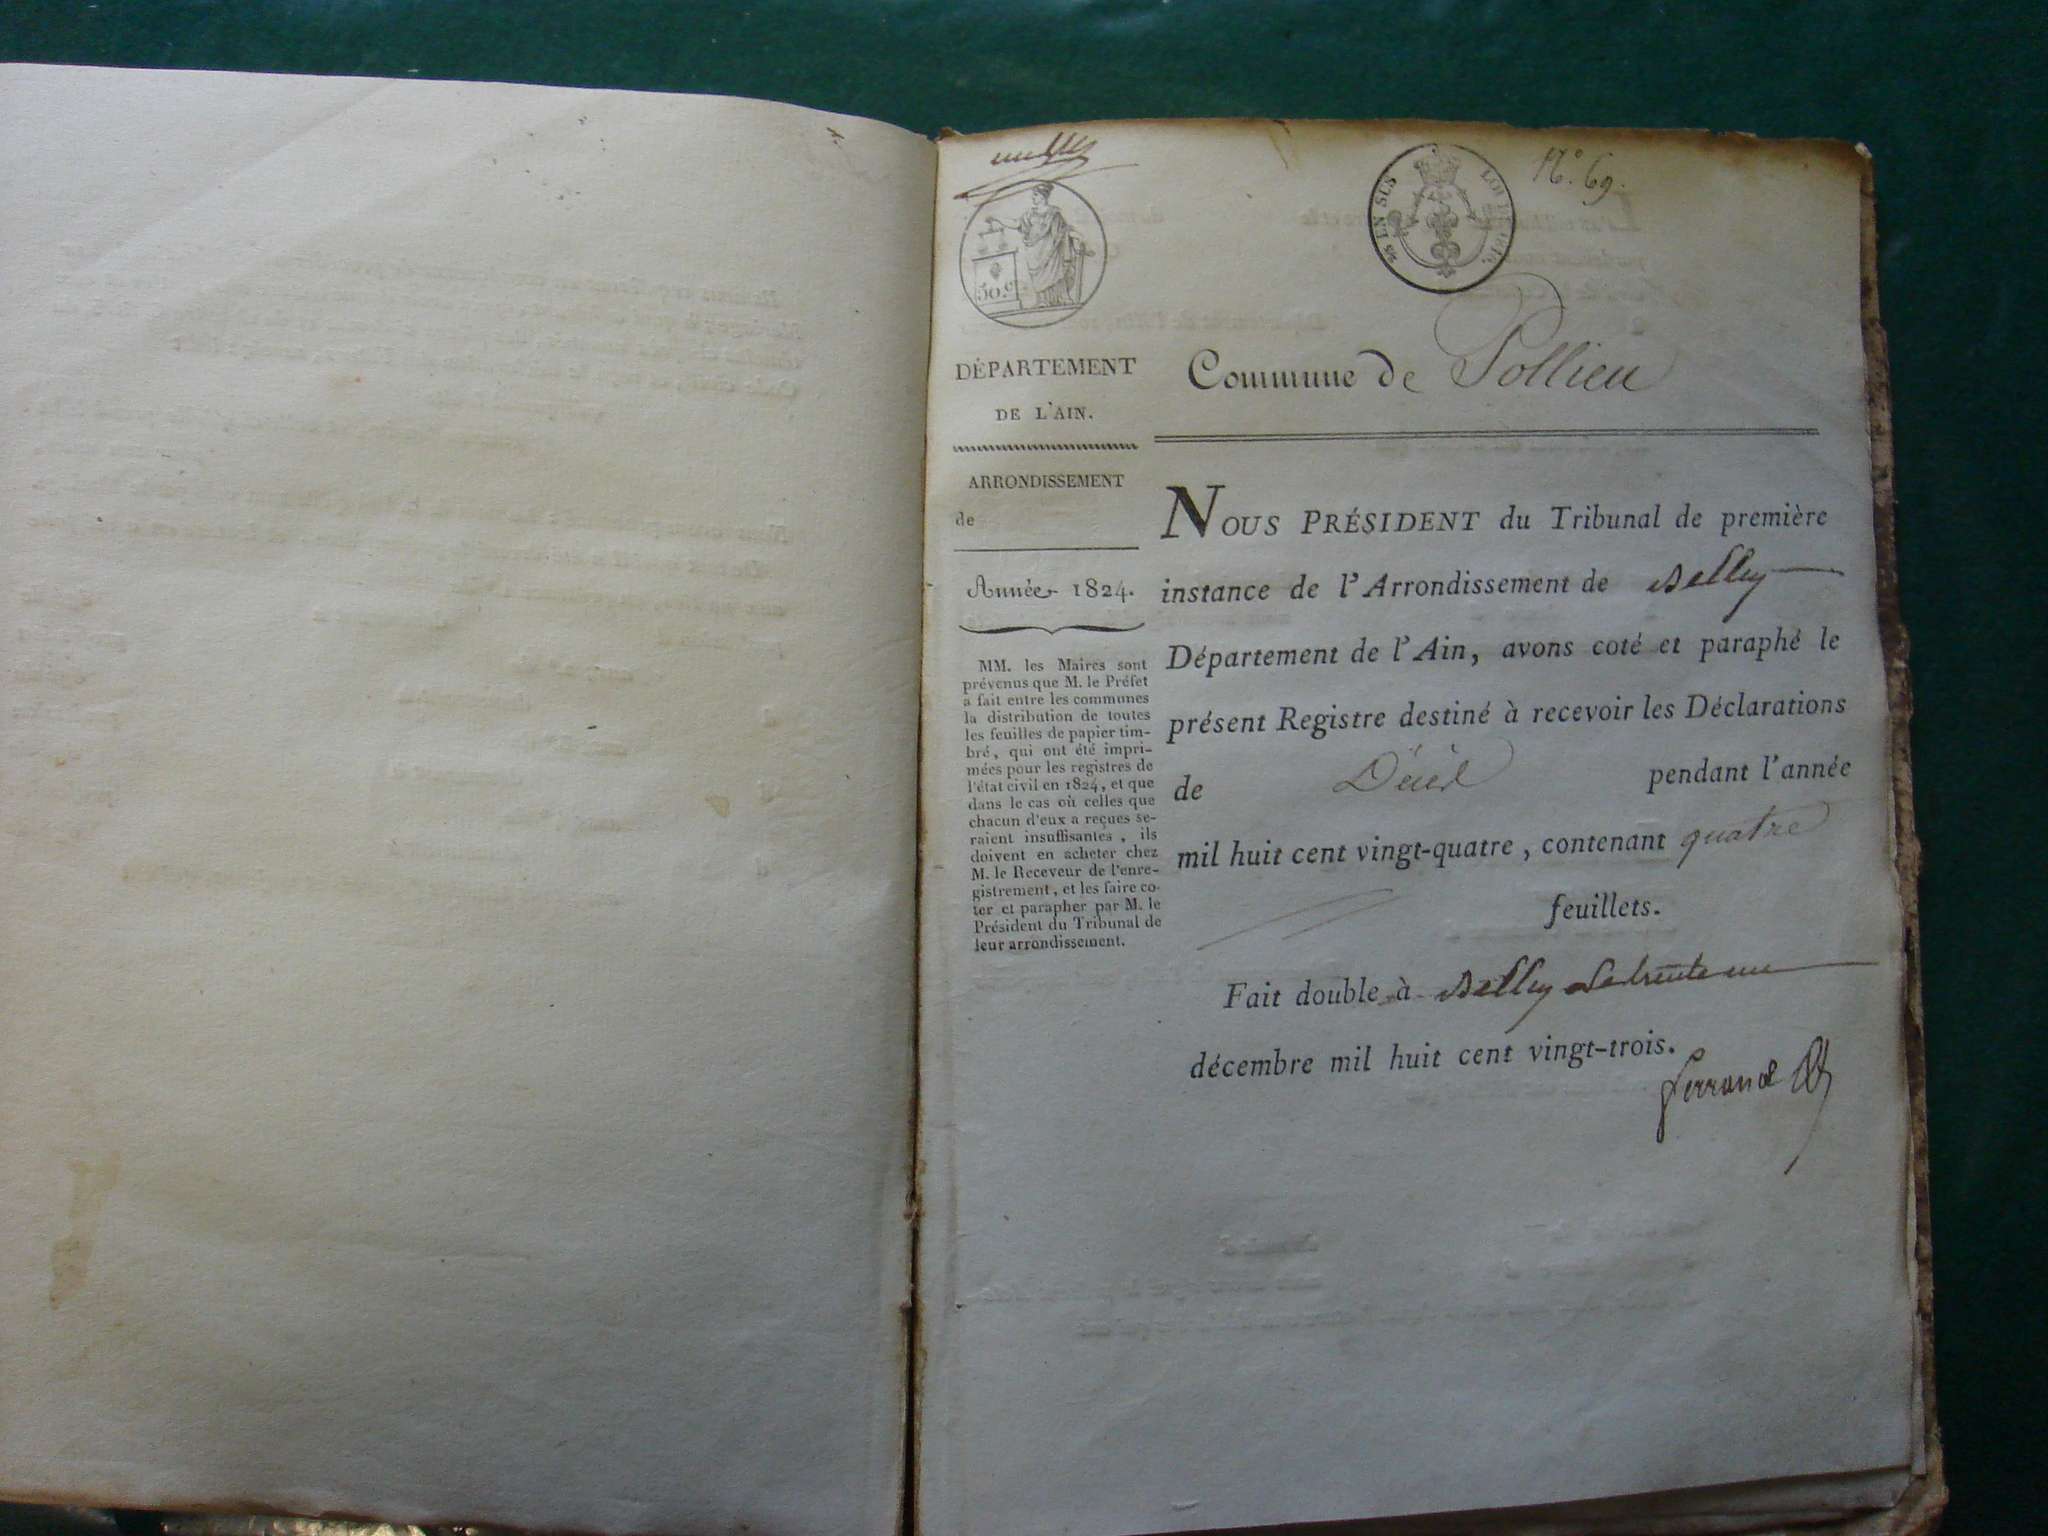 N.º 69.
EN SUS
LOI
50.c
DÉPARTEMENT
DE L'AIN.
ARRONDISSEMENT
de
Année 1824.
MM. les Maires sont
prévenus que M. le Préfet
a fait entre les communes
la distribution de toutes
les feuilles de papier tim-
bré, qui ont été impri-
mées pour les registres de
l'état civil en 1824, et que
dans le cas où celles que
chacun d'eux a reçues se-
raient insuffisantes, ils
doivent en acheter chez
M. le Receveur de l'enre-
gistrement, et les faire co-
ter et parapher par M. le
Président du Tribunal de
leur arrondissement.
Commune de Pollieu
NOUS PRÉSIDENT du Tribunal de première
instance de l'Arrondissement de Belley
Département de l'Ain, avons coté et paraphé le
présent Registre destiné à recevoir les Déclarations
de Décès pendant l'année
mil huit cent vingt-quatre, contenant quatre
feuillets.
Fait double à Belley le trente un
décembre mil huit cent vingt-trois.